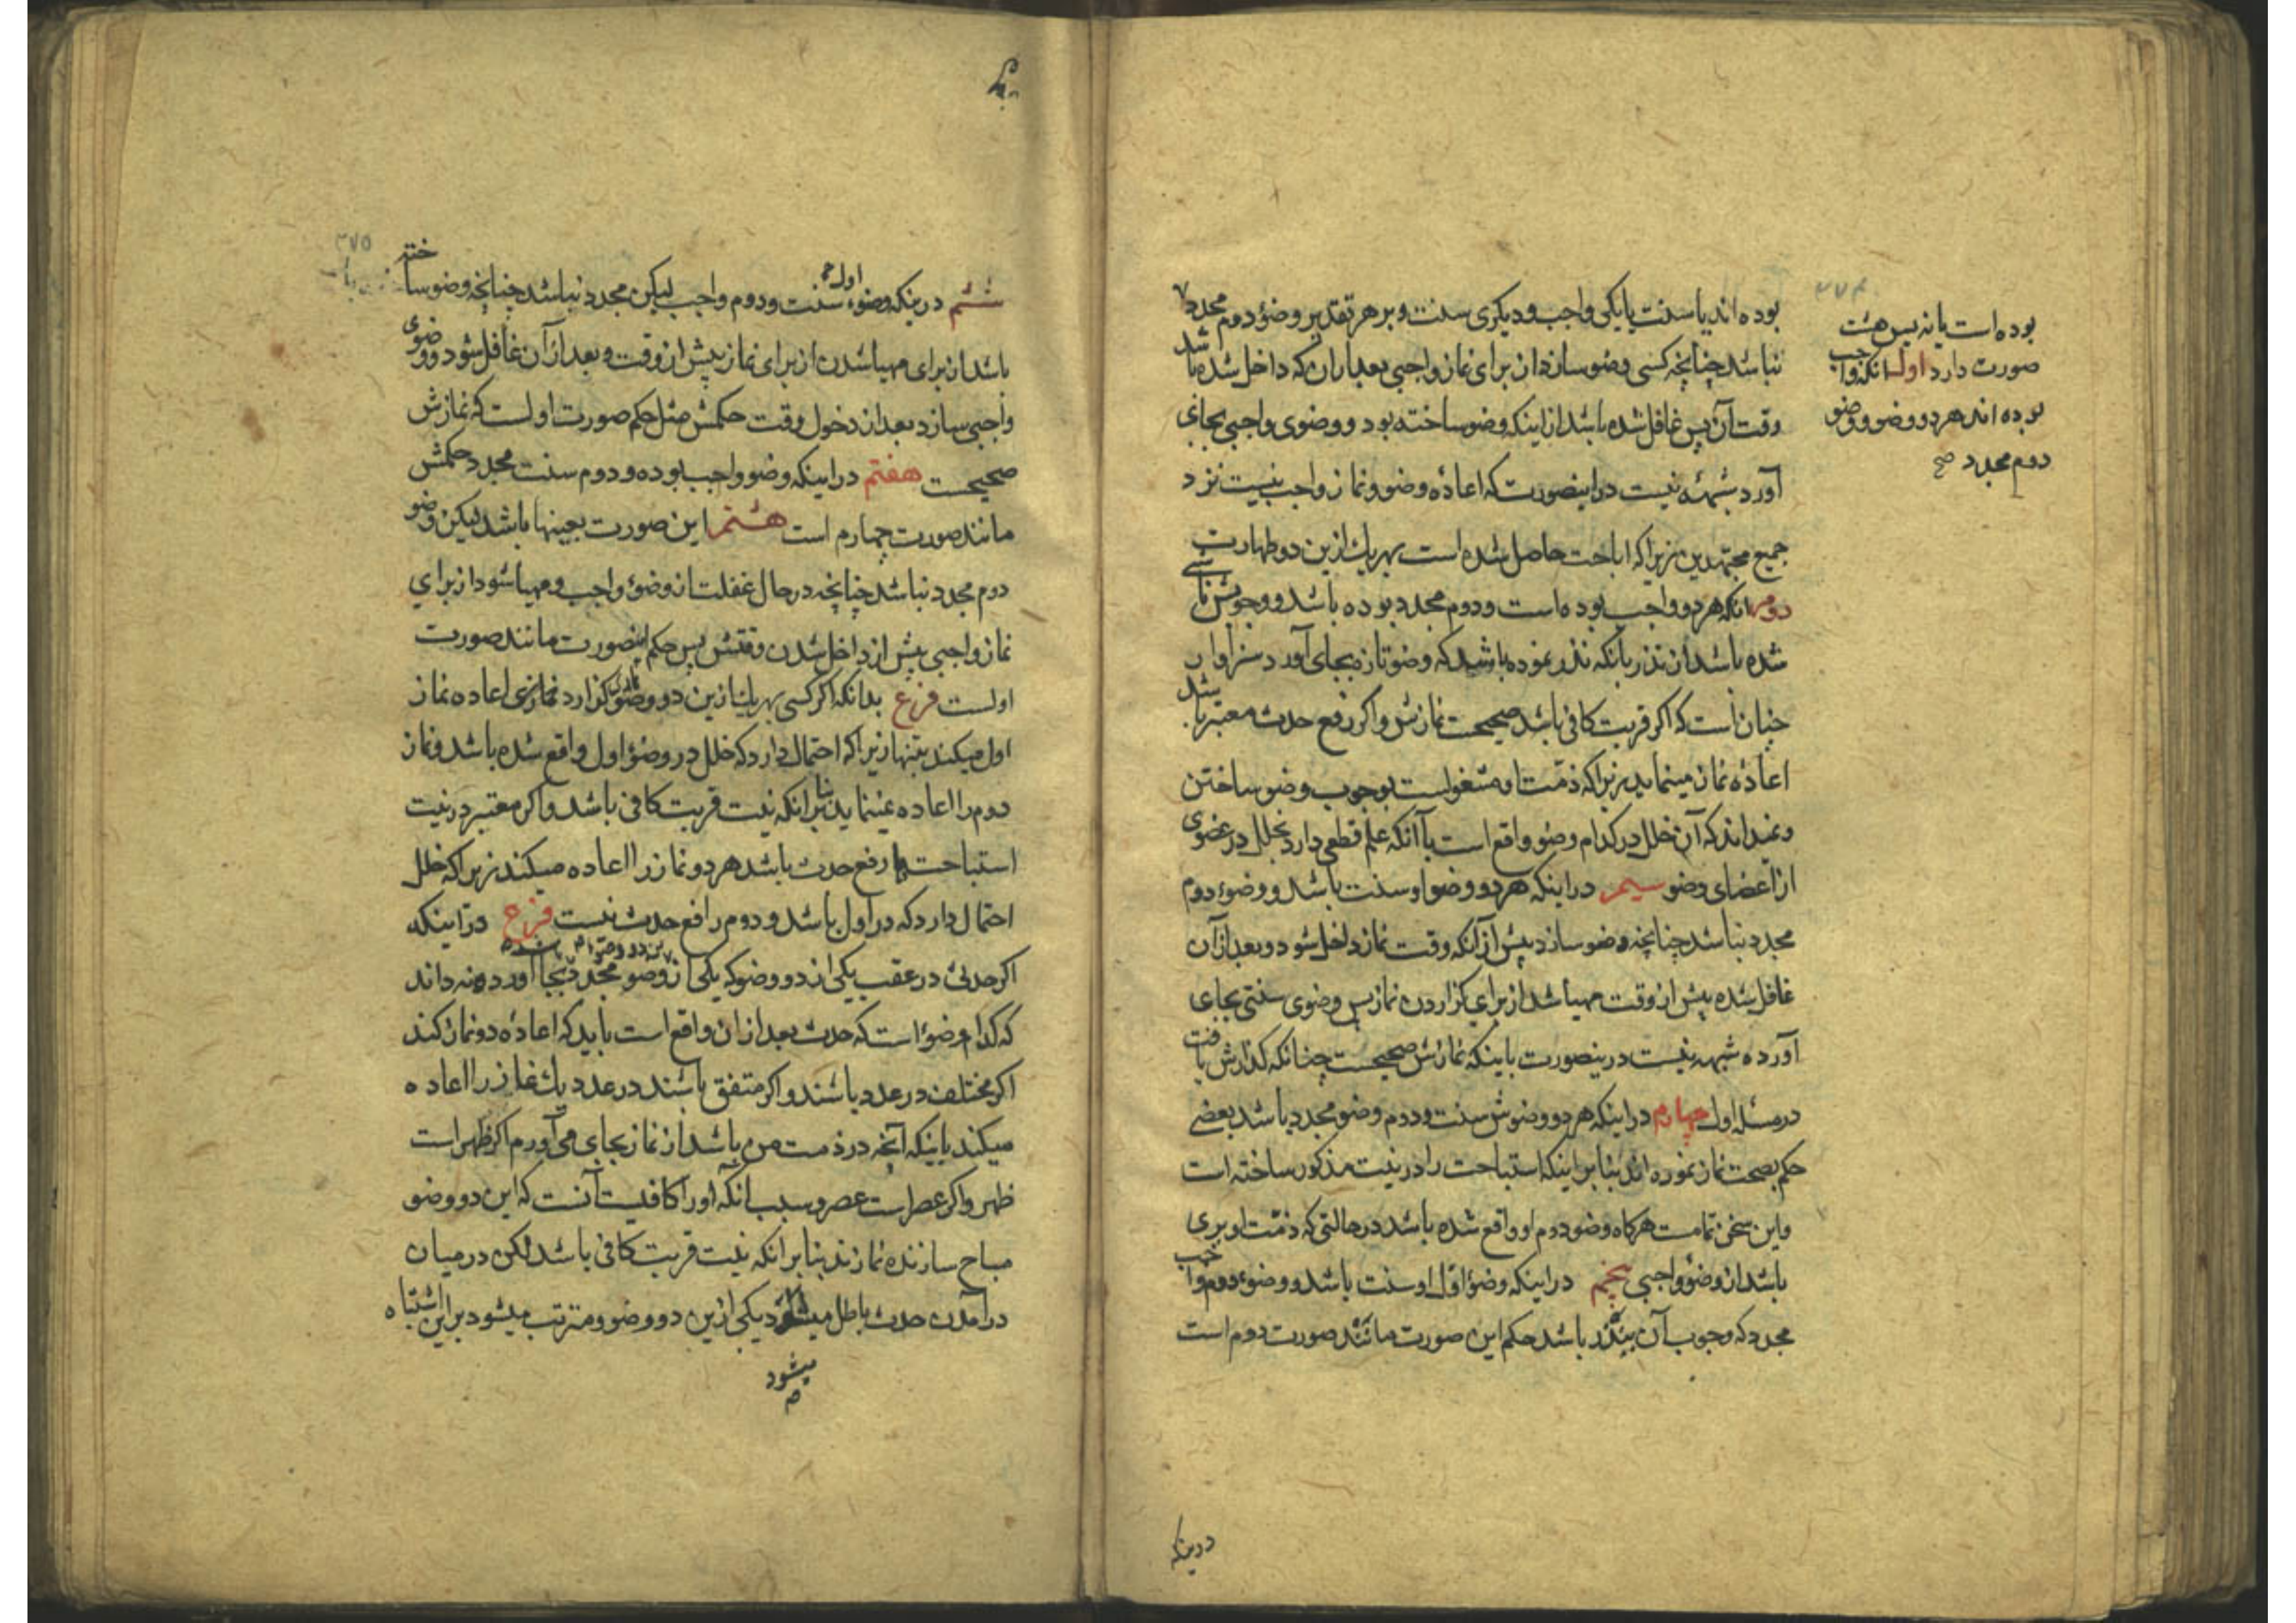 ۲۷۴
بوده‌اند یا سنت یا یکی واجب و دیکری سنت و بر هر تقدیر وضوٴ دوم مجدد
نباشد چنانچه کسی وضو سازد از برای نماز واجبی بعد از آن که داخل شده باشد
وقت آن پس غافل شده باشد از اینکه وضو ساخته بود و وضوی واجبی بجای
آورد شبهه نیست در اینصورت که اعادهٔ وضو و نماز واجب نیست نزد
جمیع مجتهدین زیرا که اباحت حاصل شده است بهر یک ازین دو طهارت
دوم انکه هر دو واجب بوده است و دوم مجدد بوده باشد و وجوبش ناشی
شده باشد از نذر بانکه نذر نموده باشد که وضو تازه بجای آورد سزاوار
چنان است که اکر قربت کافی باشد صحیحست نمازش و اکر رفع حدث معتبر باشد
اعادهٔ نماز مینماید زیرا که ذمّت او مشغولست بوجوب وضو ساختن
و نمیداند که آن خلل در کدام وضو واقع است با آنکه علم قطعی دارد بخلل در عضوی
از اعضای وضو سیم در اینکه هر دو وضو او سنت باشد و وضوٴ دوم
مجدد نباشد چنانچه وضو سازد پیش از آنکه وقت نماز داخل شود و بعد از آن
غافل شده پیش از وقت مهیا شد از برای کزاردن نماز پس وضوی سنتی بجای
آورده شبهه نیست درینصورت باینکه نمازش صحیحست چنانکه کذارش یافت
در مسئلهٔ اول چهارم در اینکه هر دو وضوش سنت و دوم وضو مجدد باشد بعضی
حکم بصحت نماز نموده‌اند بنابر اینکه استباحت را در نیت مذکور ساخته است
و این سخن تمامست هرکاه وضو دوم او واقع شده باشد در حالتی که ذمّت او بری
باشد از وضوٴ واجبی پنجم در اینکه وضوٴ اوّل او سنت باشد و وضوٴ دوم واجب
مجدد که وجوب آن بنذر باشد حکم این صورت مانند صورت دوم است
درینکه
بوده است یا نه پس هشت
صورت دارد اول انکه واجب
بوده‌اند هر دو وضو و وضو
دوم مجدد صح
۲۷۵
ششم درینکه وضوٴ اول سنت و دوم واجب لیکن مجدد نباشد چنانچه وضو ساخته
باشد از برای مهیا شدن از برای نماز پیش از وقت و بعد از آن غافل شود و وضوی
واجبی سازد بعد از دخول وقت حکمش مثل حکم صورت اولست که نمازش
صحیحست هفتم در اینکه وضو واجب بوده و دوم سنت مجدد حکمش
مانند صورت چهارم است هشتم این صورت بعینها باشد لیکن وضو
دوم مجدد نباشد چنانچه در حال غفلت از وضوٴ واجب و مهیا شود از برای
نماز واجبی پیش از داخل شدن وقتش پس حکم اینصورت مانند صورت
اولست فرع بدانکه اکر کسی بهر یک ازین دو وضو کزارد نمازی اعاده نماز
اول میکند بتنها زیرا که احتمال دارد که خلل در وضوٴ اول واقع شده باشد و نماز
دوم را اعاده نمینماید بنابر انکه نیت قربت کافی باشد و اکر معتبر در نیت
استباحت یا رفع حدث باشد هر دو نماز را اعاده میکند زیرا که خلل
احتمال دارد که در اول باشد و دوم رافع حدث نیست فرع در اینکه
اکر حدثی در عقب یکی از دو وضو که یکی از وضو مجدد بجا آورده و نه داند
که کدام وضوٴ است که حدث بعد از ان واقع است باید که اعادهٔ دو نماز کند
اکر مختلف در عدد باشند و اکر متفق باشند در عدد یک نماز را اعاده
میکند باینکه آنچه در ذمت من باشد از نماز بجای می‌آورم اکر ظهر است
ظهر و اکر عصر است عصر و سبب انکه او را کافیست آنست که این دو وضو
مباح سازنده نمازند بنابر انکه نیت قربت کافی باشد لکن در میان
درآمدن حدث باطل میشود یکی ازین دو وضو و مترتب میشود بر این اشتباه
میشود